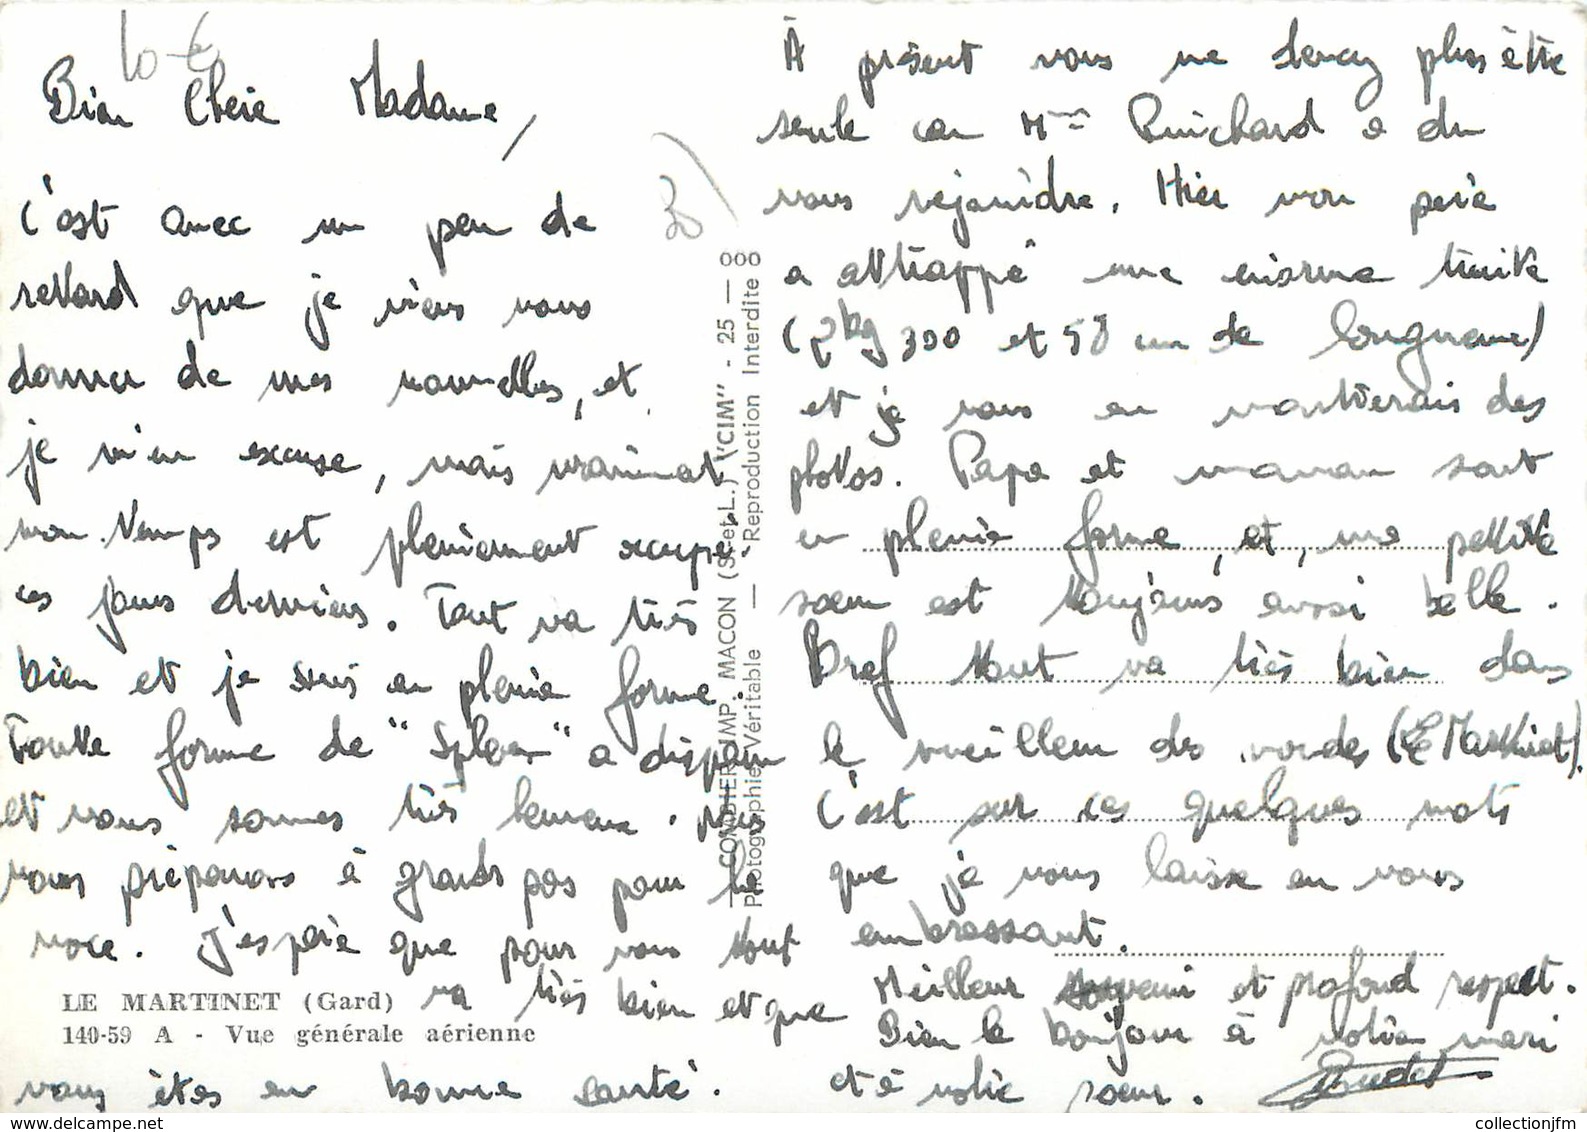 10-€
Bien Chère Madame,
c'est avec un peu de
retard que je viens vous
donner de mes nouvelles, et
je m'en excuse, mais vraiment
mon temps est pleinement occupé
ces jours derniers. Tout va très
bien et je suis en pleine forme.
Toute forme de "Spleen" a disparu
et nous sommes très heureux. Nous
nous préparons à grands pas pour la
noce. J'espère que pour vous tout
va très bien et que
vous êtes en bonne santé.
LE MARTINET (Gard)
140-59 A - Vue générale aérienne
COMBIER IMP. MACON (S.-et-L.) "CIM" - 25 — 000
Photographie Véritable — Reproduction Interdite
À présent vous ne devez plus être
seule car Mme Guichard a du
vous rejoindre. Hier mon père
a attrappé une énorme truite
(2kg 300 et 58 cm de longueur)
et je vous en montrerais des
photos. Papa et maman sont
en pleine forme, et, ma petite
sœur est toujours aussi belle.
Bref tout va très bien dans
le meilleur des mondes (Le Martinet).
C'est sur ces quelques mots
que je vous laisse en vous
embrassant.
Meilleur souvenir et profond respect.
Bien le bonjour à votre mari
et à votre sœur.
collectionjfm